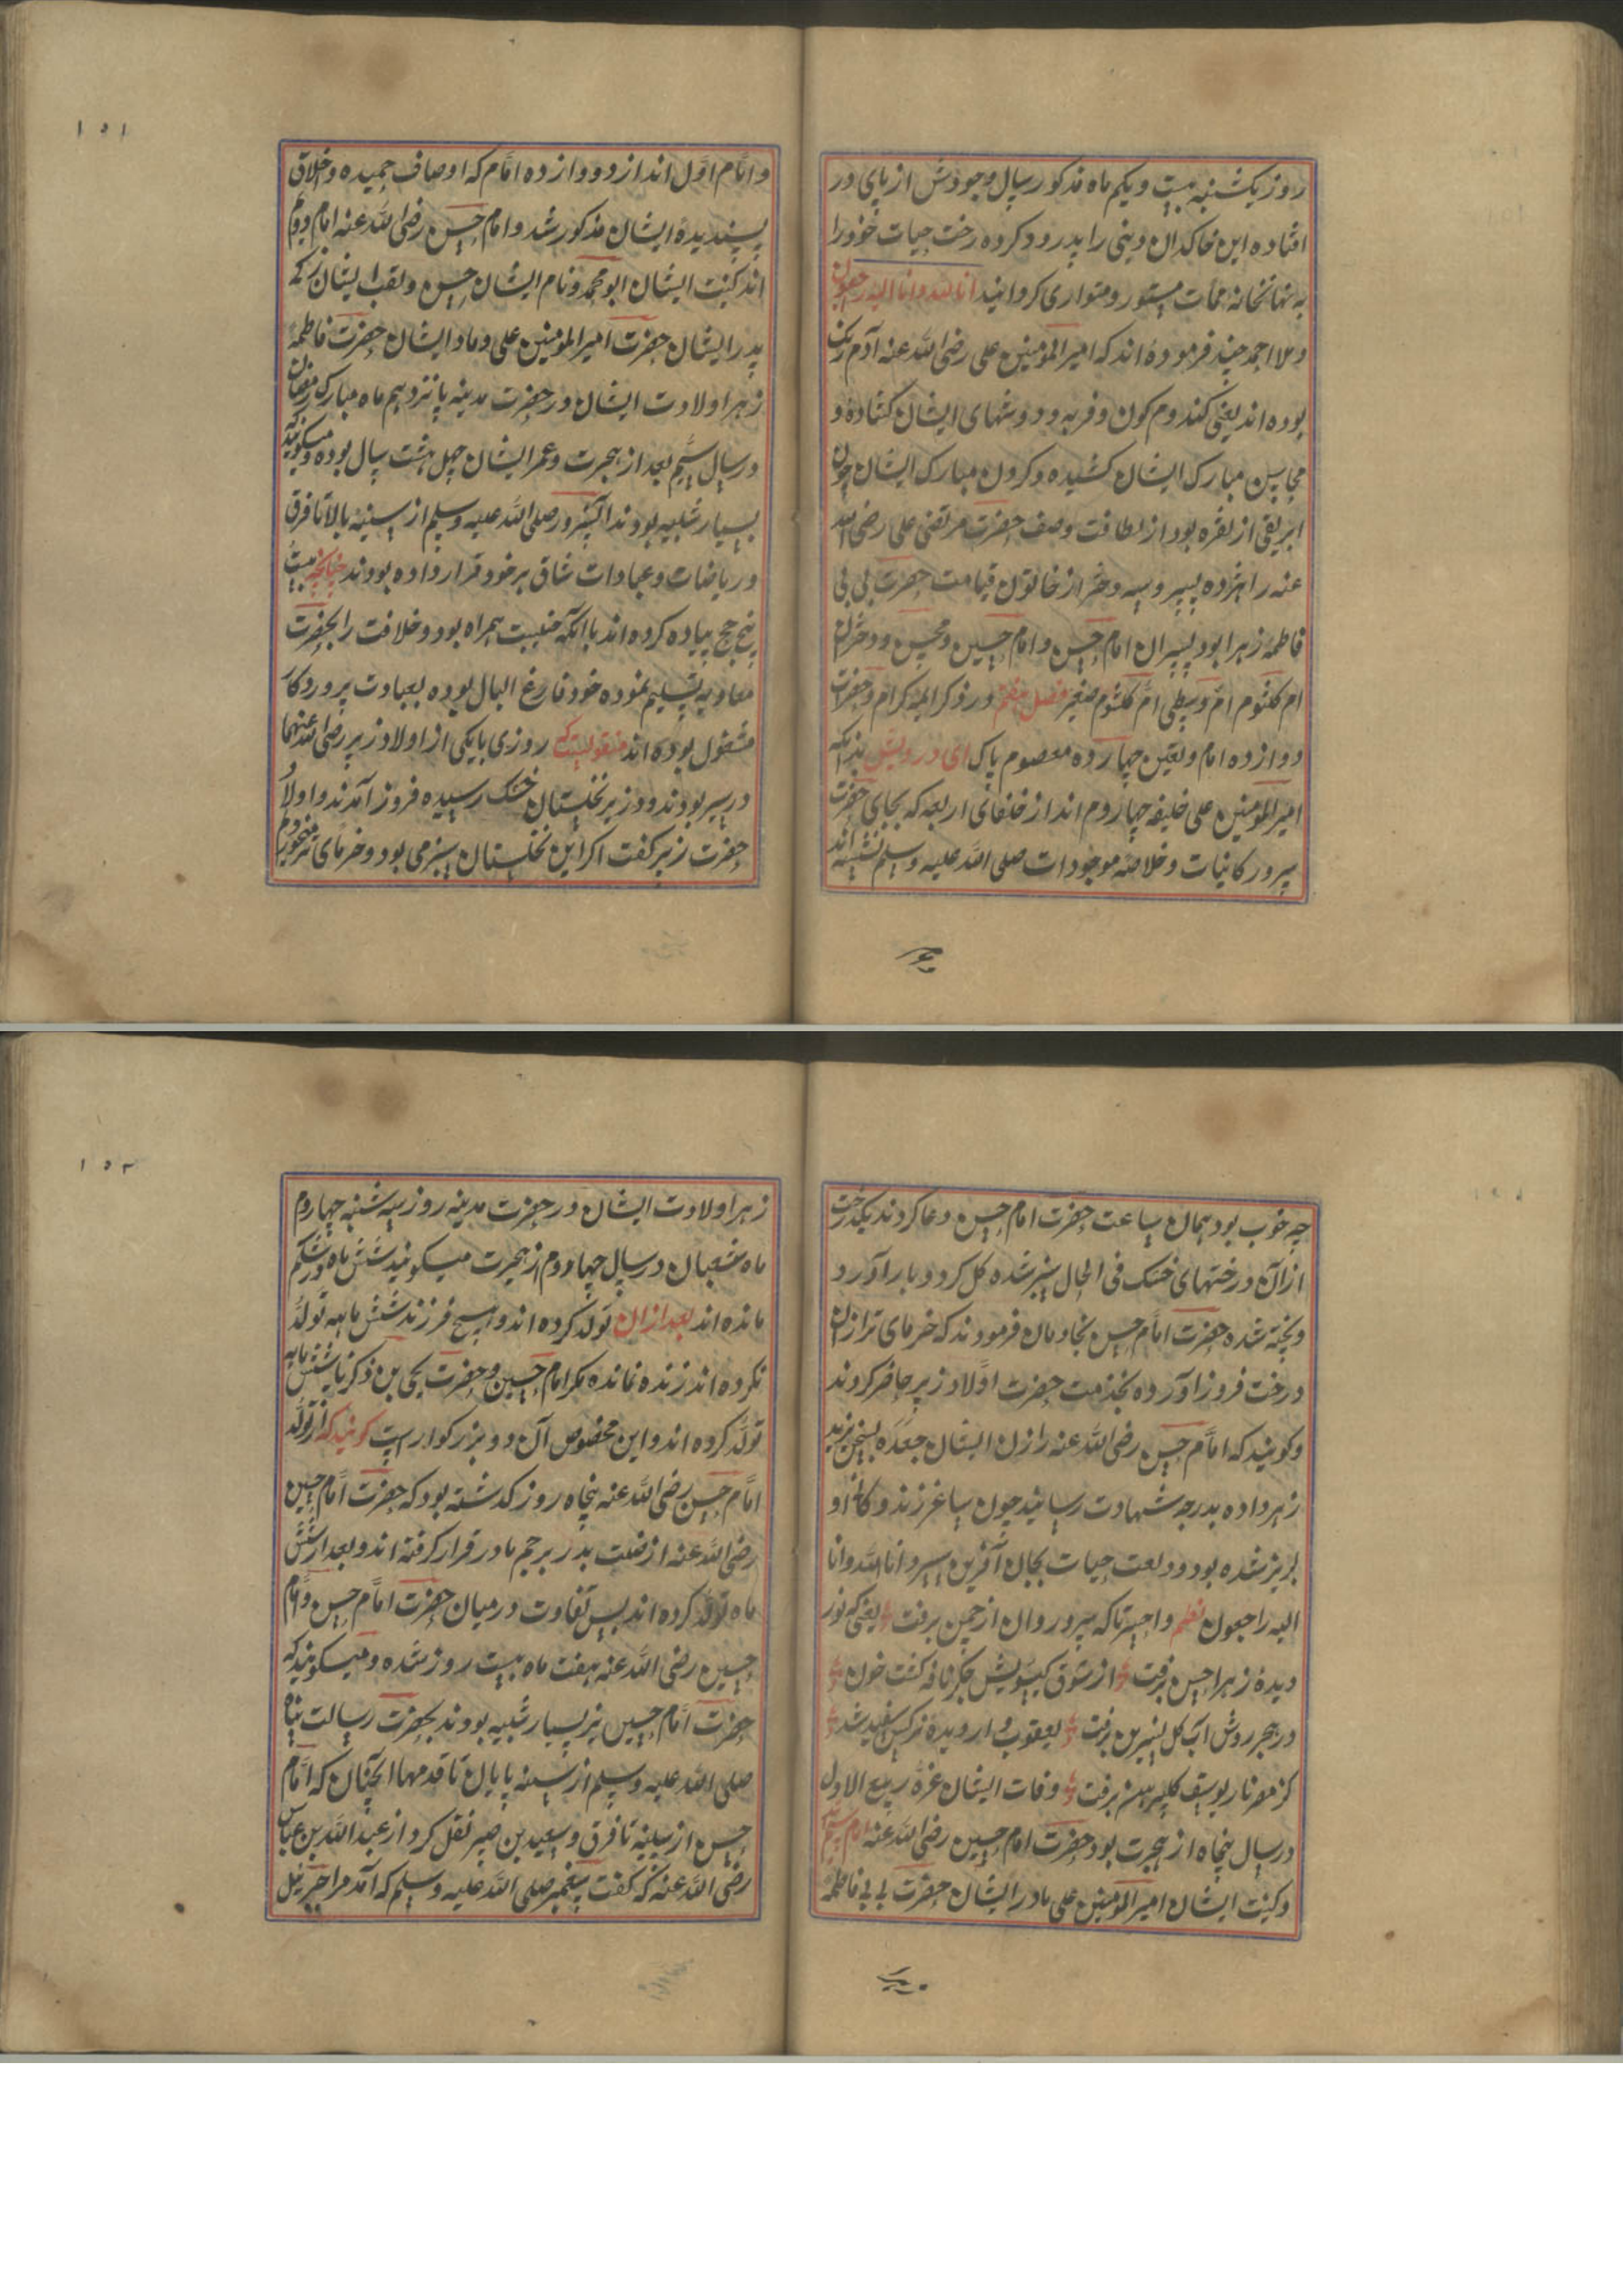 روز یکشنبه بیست و یکم ماه مذکور سال وجودش از پای در
افتاده این خاکدان دینی را پدرود کرده رخت حیات خود را
به نهانخانه ممات مستور و متواری کردانید انا لله وانا الیه راجعون
و ملا احمد جنید فرموده اند که امیر المؤمنین علی رضی الله عنه آدم رنک
بوده اند یعنی کندوم کون و فربه و دوشهای ایشان کشاده و
محاسن مبارک ایشان کشیده و کردن مبارک ایشان چون
ابریقی از نقره بود از لطافت وصف حضرت مرتضی علی رضی الله
عنه را هژده پسر و سه دختر از خاتون قیامت حضرت بی بی
فاطمه زهرا بود پسران امام حسن و امام حسین و محسن و دختران
ام کلثوم ام وسطی ام کلثوم صغیر فصل هفتم در ذکر ائمه کرام و حضرات
دوازده امام و تعین چهارده معصوم پاک ای درویش بدانکه
امیر المؤمنین علی خلیفه چهاردوم اند از خلفای اربعه که بجای حضرت
سرور کاینات و خلاصه موجودات صلی الله علیه وسلم نشسته اند
۱۵۱
و امام اول اند از دووازده امام که اوصاف حمیده و اخلاق
پسندیدهٔ ایشان مذکور شد و امام حسن رضی الله عنه امام دوم
اند کنیت ایشان ابو محمد و نام ایشان حسن و لقب ایشان زکی
پدر ایشان حضرت امیر المؤمنین علی و مادر ایشان حضرت فاطمهٔ
زهرا ولادت ایشان در حضرت مدینه پانزدهم ماه مبارک رمضان
در سال سیم بعد از هجرت و عمر ایشان چهل هشت سال بوده و میکویند که
بسیار شبیه بودند آنسرور صلی الله علیه وسلم از سینه بالا تا فرق
و ریاضات و عبادات شاق بر خود قرار داده بودند چنانچه بیست
پنج حج پیاده کرده اند با آنکه جنیبت همراه بود و خلافت را بحضرت
معاویه تسلیم نموده خود فارغ البال بوده بعبادت پروردکار
مشغول بوده اند منقولست که روزی با یکی از اولاد زبیر رضی الله عنهما
در سیر بودند و در زیر نخلستان خشک رسیده فروز آمدند و اولاد
حضرت زبیر کفت اکر این نخلستان سبز می بود و خرمای تر میخوردم
چه خوب بود همان ساعت حضرت امام حسن دعا کردند یکدرخت
از آن درختهای خشک فی الحال سبز شده کل کرد و بار آورد
و پخته شده حضرت امام حسن بخادمان فرمودند که خرمای تر ازان
درخت فروز آورده بخدمت حضرت اولاد زبیر حاضر کردند
و کویند که امام حسن رضی الله عنه را زن ایشان جعده بسخن یزید
زهر داده بدرجه شهادت رسانید چون ساغر زندوکانی او
لبریز شده بود ودیعت حیات بجان آفرین سپرد انا لله وانا
الیه راجعون نظم واحسرتا که سرو روان از چمن برفت یعنی که نور
دیدهٔ زهرا حسن برفت از شوق کیسویش جکر نافه کشت خون
در هجر روش آب کل نسرین برفت یعقوب وار دیدهٔ نرکس سفید شد
کز مصر ناز یوسف کل پیرهن برفت وفات ایشان غرهٔ ربیع الاول
در سال پنجاه از هجرت بود حضرت امام حسین رضی الله عنه امام سیم
و کنیت ایشان امیر المؤمنین علی مادر ایشان حضرت بی بی فاطمهٔ
۱۵۲
زهرا ولادت ایشان در حضرت مدینه روز سه شنبه چهاروم
ماه شعبان در سال چهاروم از هجرت میکویند شش ماه در شکم
مانده اند بعد ازان تولد کرده اند و هیچ فرزند شش ماهه تولد
نکرده اند زنده نمانده مکر امام حسین و حضرت یحیی بن ذکریا شش ماهه
تولد کرده اند و این مخصوص آن دو بزرکوار است کویند که از تولد
امام حسن رضی الله عنه پنجاه روز کذشته بود که حضرت امام حسین
رضی الله عنه از صلب پدر برحم مادر قرار کرفته اند و بعد از شش
ماه تولد کرده اند پس تفاوت در میان حضرت امام حسن و امام
حسین رضی الله عنه هفت ماه بیست روز شده و میکویند که
حضرت امام حسین نیز بسیار شبیه بودند بحضرت رسالت پناه
صلی الله علیه وسلم از سینه پایان تا قدمها آنچنان که امام
حسن از سینه تا فرق و سعید بن جبیر نقل کرد از عبد الله بن عباس
رضی الله عنه که کفت پیغمبر صلی الله علیه وسلم که آمد مرا جبرئیل